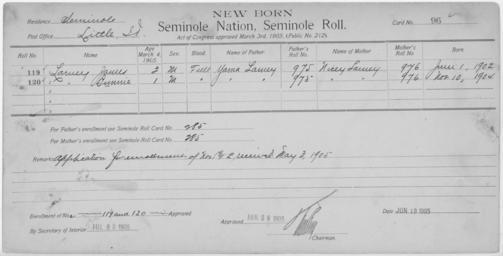 NEW BORN
Residence Seminole
Seminole Nation, Seminole Roll.
Card No. 96
Post Office Little I.T.
Act of Congress approved March 3rd, 1905, (Public No. 212).
Roll No. Name Age March 4, 1905. Sex. Blood. Name of Father Father's Roll No. Name of Mother Mother's Roll No. Born
119 Larney, James 2 M. Full Yama Larney 975 Wicey Larney 976 June 1, 1902
120 " 1 M. " " " 975 " " 976 Nov. 10, 1904
For Father's enrollment see Seminole Roll Card No. 285
For Mother's enrollment see Seminole Roll Card No. 285
Remarks Application for enrollment of Nos 1 & 2 received May 2, 1905
Enrollment of Nos 119 and 120 Approved
By Secretary of Interior 1905
Approved 1905
Chairman.
Dated JUN 10 1905